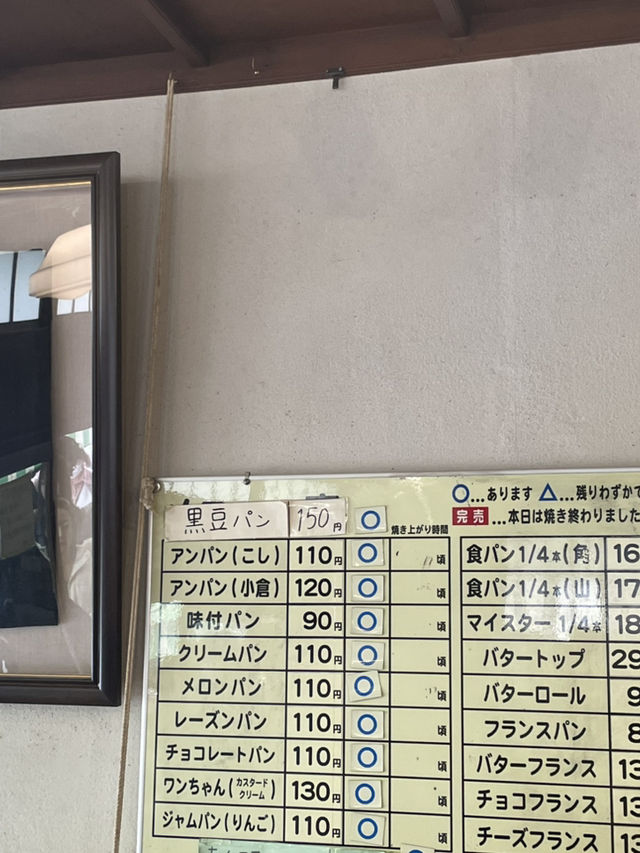 ○…あります △…残りわずかで
完売…本日は焼き終わりました
黒豆パン 150円 ○
焼き上がり時間
アンパン(こし) 110円 ○ 頃
アンパン(小倉) 120円 ○ 頃
味付パン 90円 ○ 頃
クリームパン 110円 ○ 頃
メロンパン 110円 ○ 頃
レーズンパン 110円 ○ 頃
チョコレートパン 110円 ○ 頃
ワンちゃん(カスタードクリーム) 130円 ○ 頃
ジャムパン(りんご) 110円 ○ 頃
食パン1/4本(角) 16
食パン1/4本(山) 17
マイスター 1/4本 18
バタートップ 29
バターロール 9
フランスパン 8
バターフランス 13
チョコフランス 13
チーズフランス